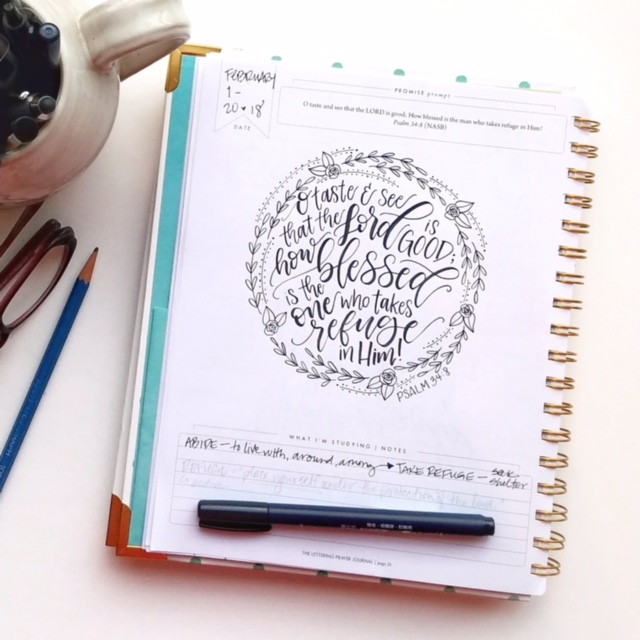 FEBRUARY
1 -
20 • 18'
DATE
PROMISE prompt
O taste and see that the LORD is good; How blessed is the man who takes refuge in Him!
Psalm 34:8 (NASB)
O taste & see
that the Lord is
GOOD;
how blessed
is the
one who takes
refuge
in Him!
PSALM 34:8
WHAT I'M STUDYING | NOTES
ABIDE - to live with, around, among → TAKE REFUGE - seek
shelter
REFUGE - place yourself under the protection of the Lord
THE LETTERING PRAYER JOURNAL | page 51